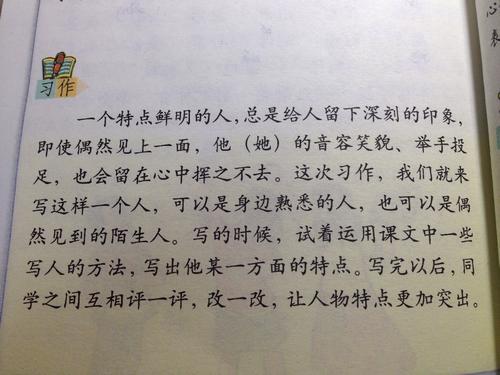 习作
一个特点鲜明的人，总是给人留下深刻的印象，
即使偶然见上一面，他（她）的音容笑貌、举手投
足，也会留在心中挥之不去。这次习作，我们就来
写这样一个人，可以是身边熟悉的人，也可以是偶
然见到的陌生人。写的时候，试着运用课文中一些
写人的方法，写出他某一方面的特点。写完以后，同
学之间互相评一评，改一改，让人物特点更加突出。